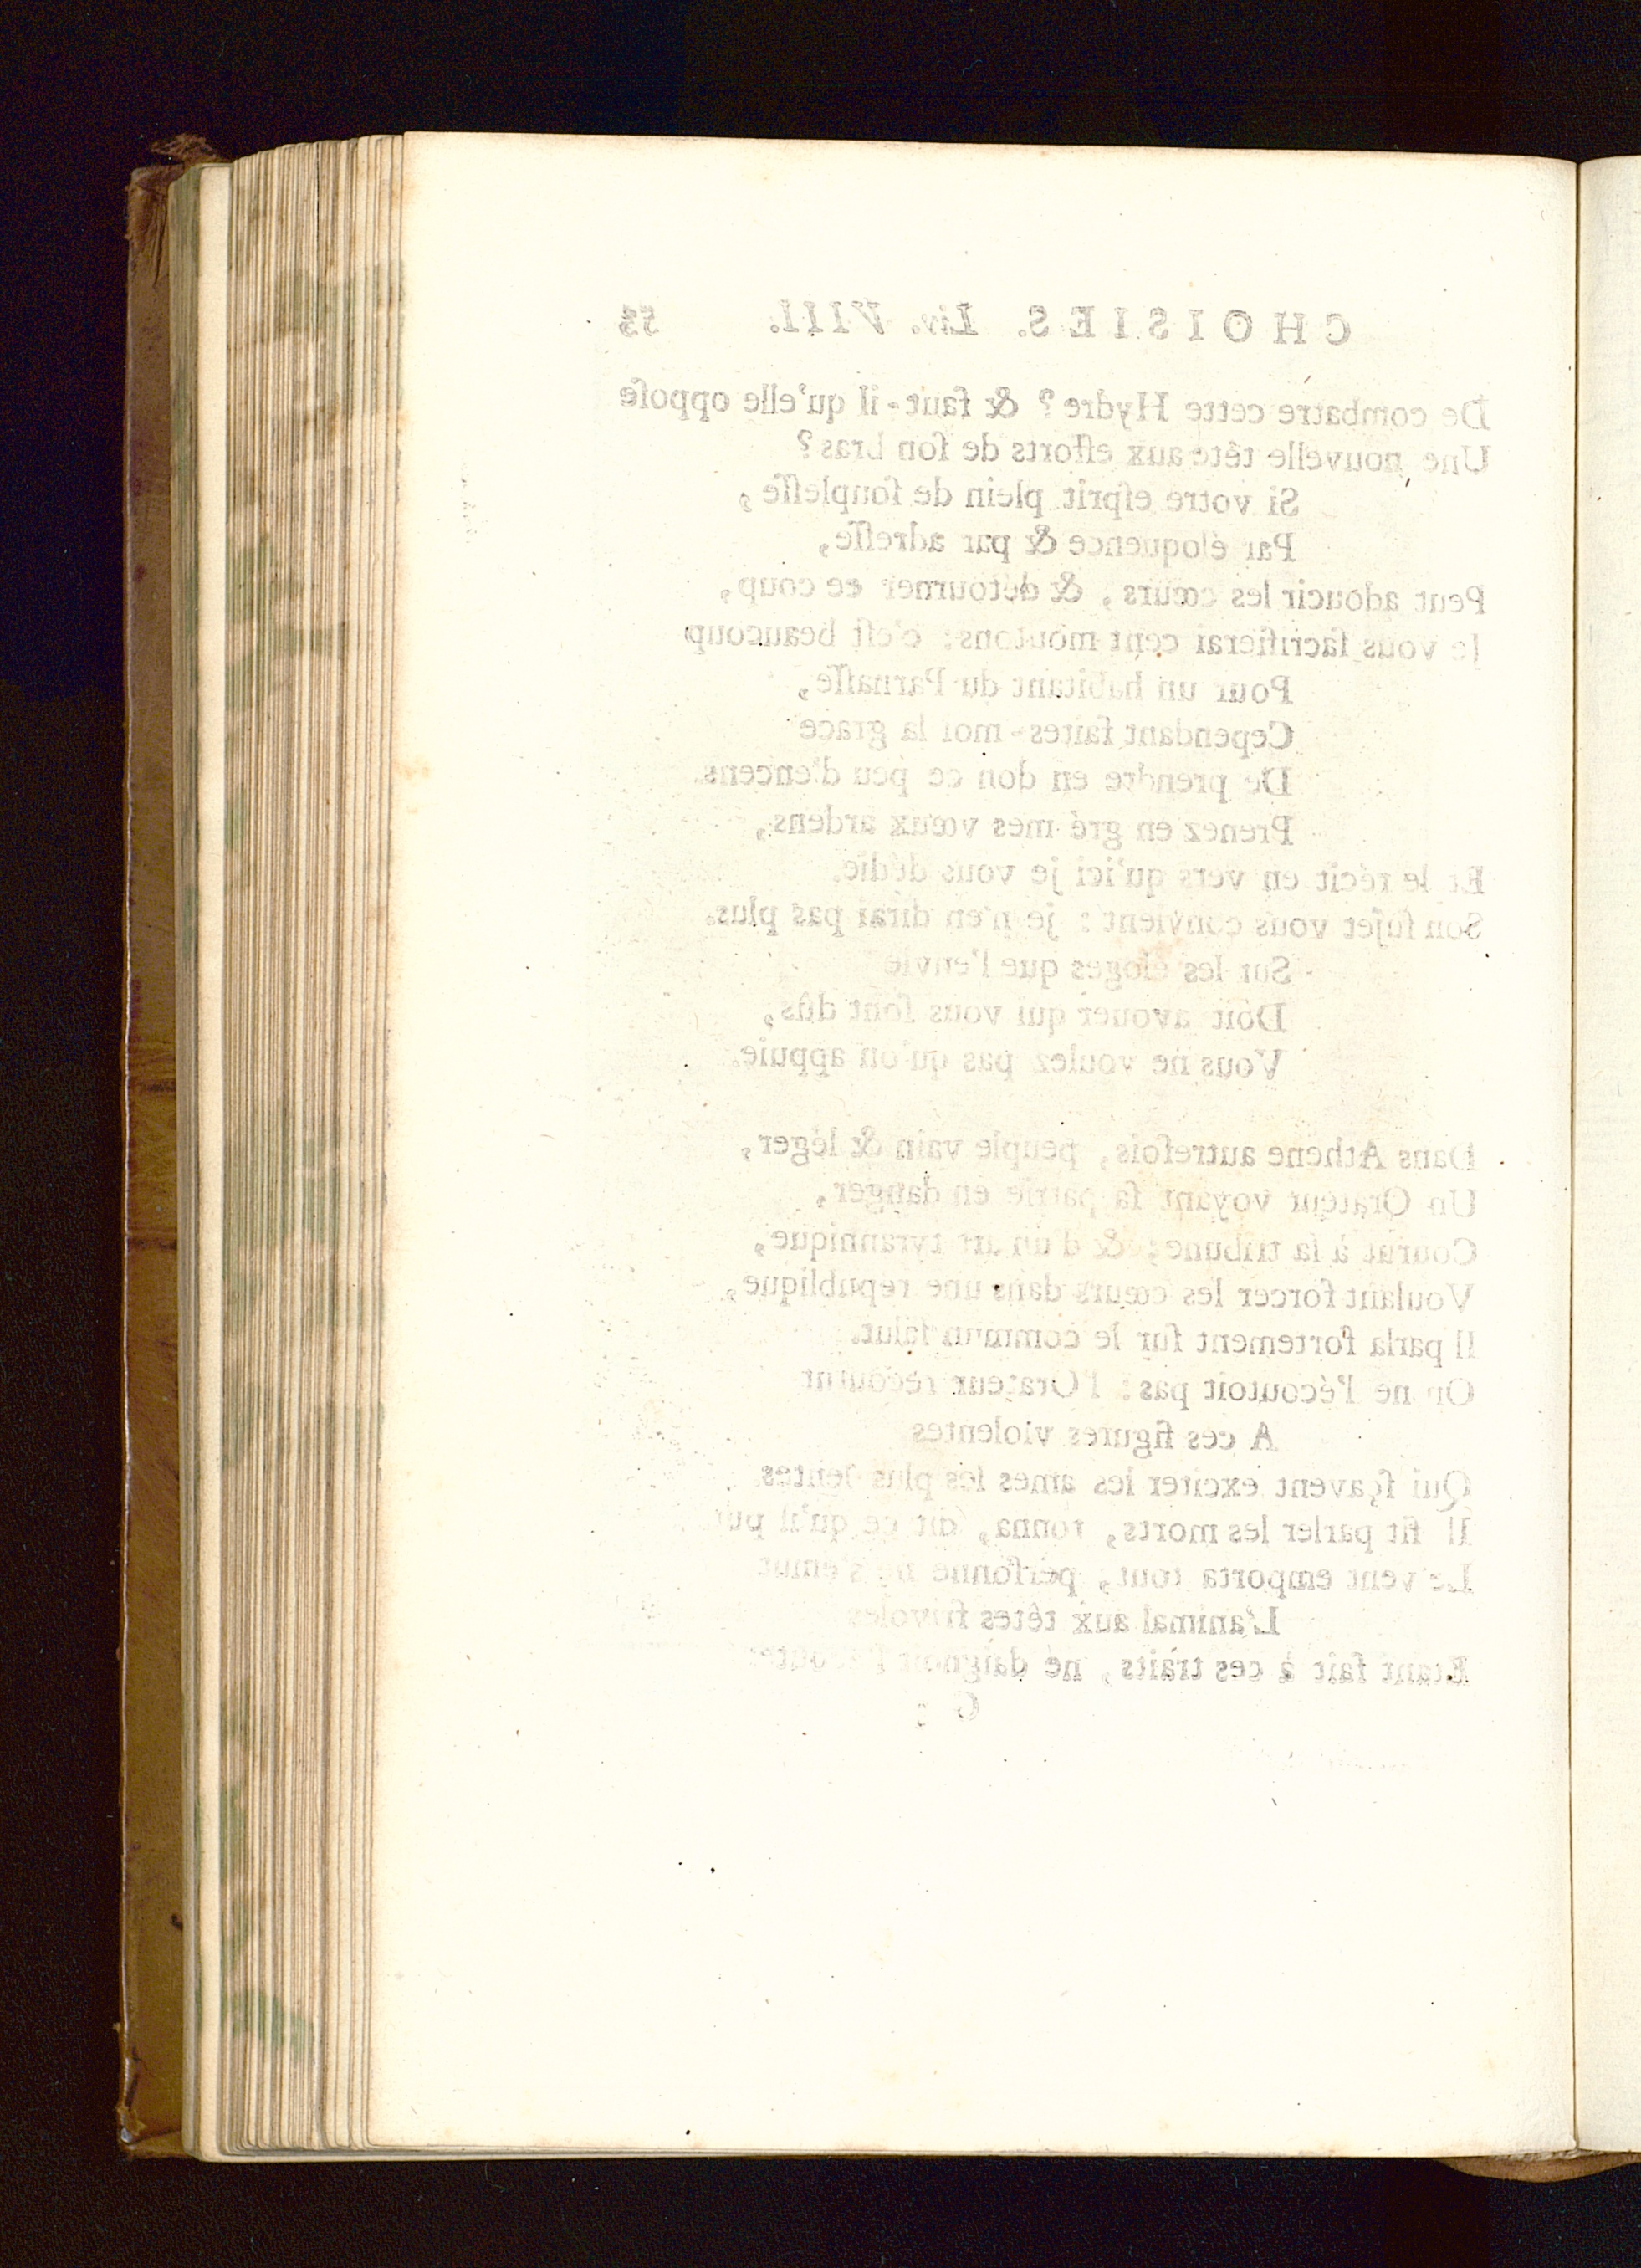 CHOISIES. Liv. VIII. 53
De combatre cette Hydre? & faut-il qu'elle oppoſe
Une nouvelle tête aux efforts de ſon bras?
Si votre eſprit plein de ſoupleſſe,
Par éloquence & par adreſſe,
Peut adoucir les cœurs, & détourner ce coup,
Je vous ſacrifierai cent moutons: c'eſt beaucoup
Pour un habitant du Parnaſſe,
Cependant faites-moi la grace
De prendre en don ce peu d'encens.
Prenez en gré mes vœux ardens,
Et le récit en vers qu'ici je vous dédie.
Son ſujet vous convient: je n'en dirai pas plus.
Sur les éloges que l'envie
Doit avouer qui vous ſont dûs,
Vous ne voulez pas qu'on appuie.
Dans Athene autrefois, peuple vain & léger,
Un Orateur voyant ſa patrie en danger,
Courut à la tribune; & d'un art tyrannique,
Voulant forcer les cœurs dans une république,
Il parla fortement ſur le commun ſalut.
On ne l'écoutoit pas: l'Orateur recourut
A ces figures violentes
Qui ſçavent exciter les ames les plus lentes.
Il fit parler les morts, tonna, dit ce qu'il put
Le vent emporta tout, perſonne ne s'émut
L'animal aux têtes frivoles
Etant fait à ces traits, ne daignoit l'écouter
G